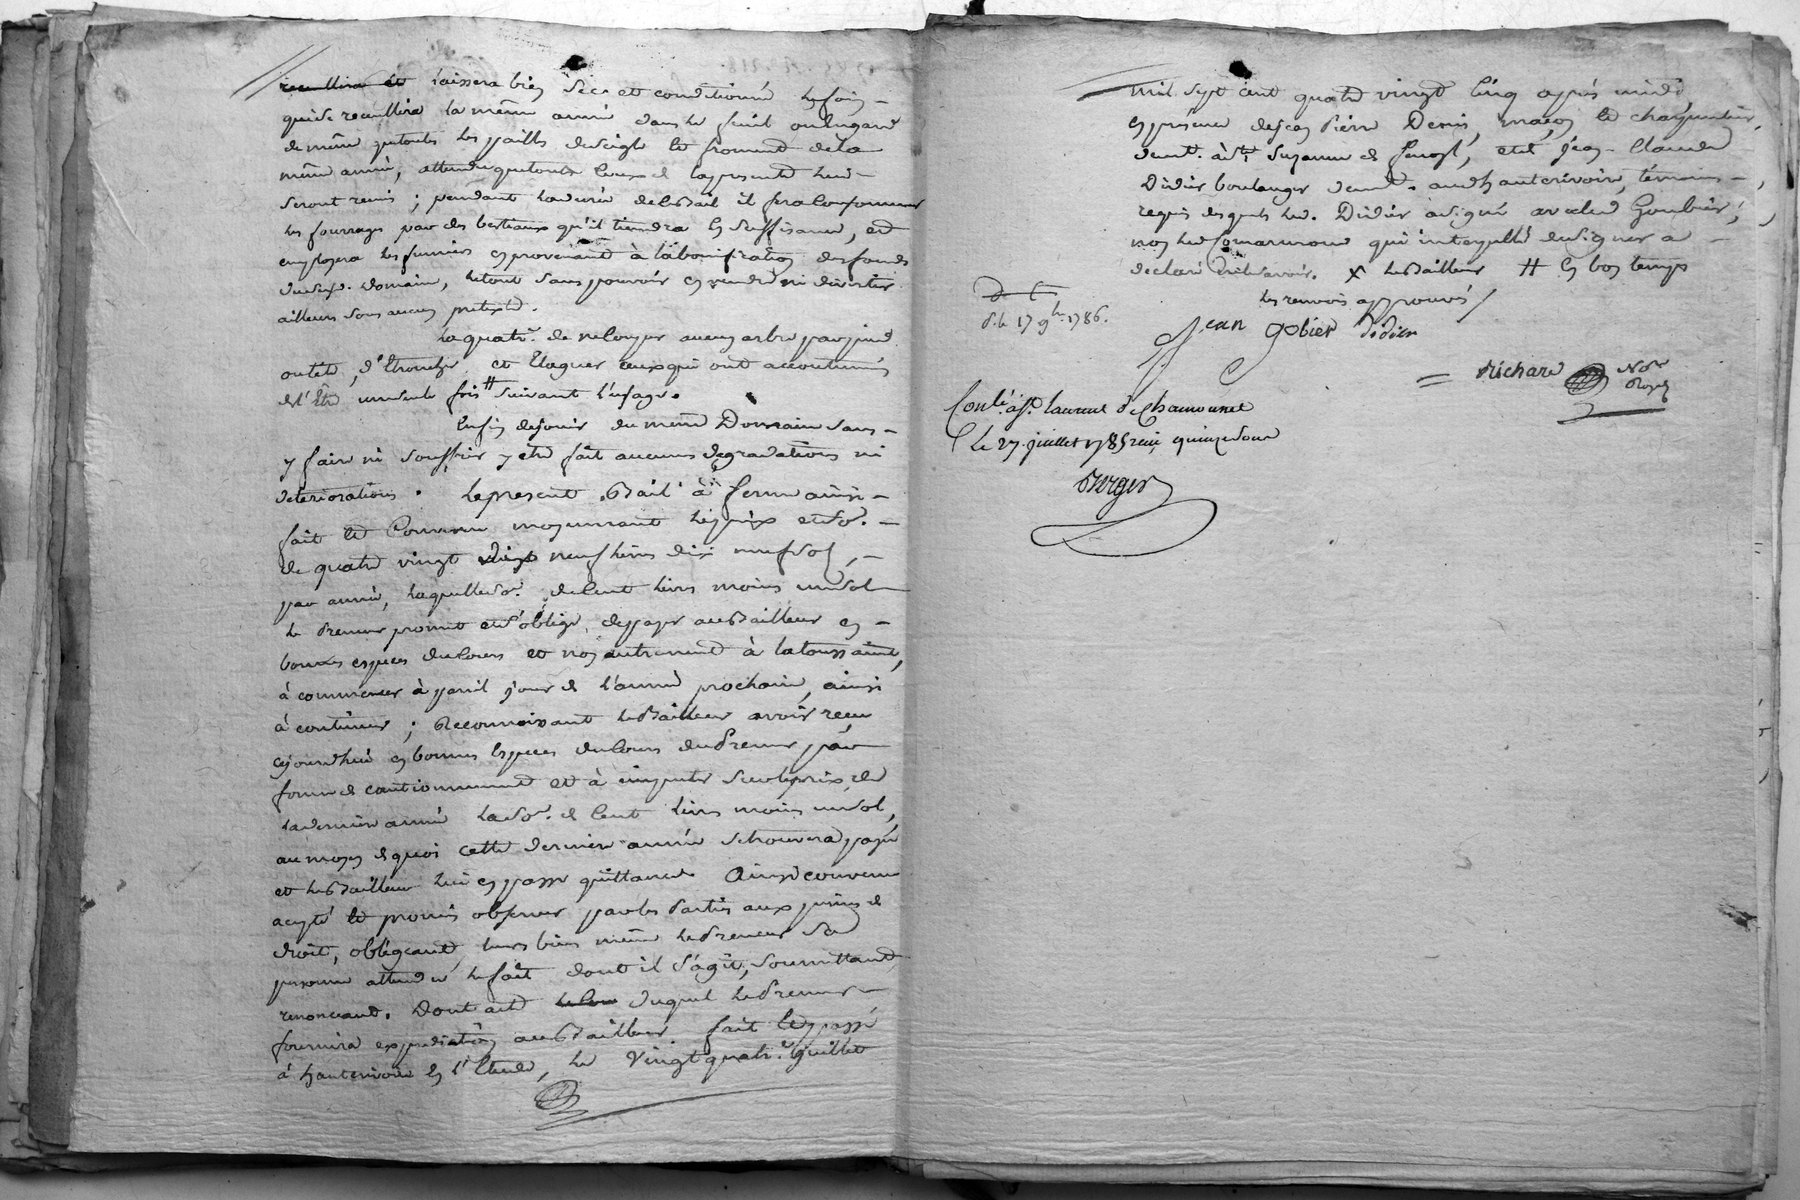 recullira et laissera bien secs et conditionné le foin
qui se recullira la même année dans le fenil ou hugard
de même que toutes les pailles de seigle et froment de la
même année, attendu que toutes celles de la presente lui
seront remis ; pendant la durée de ce Bail il fera consommer
les fourrages par des bestiaux qu'il tiendra en suffisance, et
employera les fumiers en provenant à la bonification des fonds
dudit domaine, le tout sans pouvoir en vendre ni divertir
ailleurs sous aucun pretexte.
La quatr.e de ne couper aucun arbre par pied
ou tête, d'ebrancher et elaguer ceux qui ont accoutumés
de l'être une seule fois # suivant l'usage.
Enfin de jouir du même Domaine sans
y faire ni souffrir y être fait aucunes degradations ni
deteriorations. Le present Bail à ferme ainsi
fait et convenu moyennant le prix et so.
de quatre vingt dix neuf livres dix neuf sols,
par année, laquelle so. de cent livres moins un sol
le Preneur promet et s'oblige de payer au Bailleur en
bonnes especes du cours et non autrement à la toussaint,
à commencer à pareil jour de l'année prochaine, ainsi
à continuer ; Reconnoissant le Bailleur avoir reçu
cejourd'hui en bonnes especes du cours du Preneur par
forme de cautionnement et à imputer sur le prix de
la derniere année la so. de cent livres moins un sol,
au moyen de quoi cette derniere année se trouvera payée
et le Bailleur lui en passe quittance. Ainsi convenu
acepté et promis observer par les Parties aux peines de
droit, obligeant leurs biens même le Preneur sa
personne attendu le fait dont il s'agit, soumittant,
renonceant. Dont acte duquel le Preneur
fournira expedition au Bailleur fait et passé
à hauterivoire en l'Etude, le vingt quatr.e juillet
mil sept cent quatre vingt cinq après midi
en présence de Jean Pierre Denis, maçon et charpentier,
demt. à St. Suzanne de , et de Jean Claude
Didier boulanger demt. aud. hauterivoire, témoins
requis desquels led. Didier a signé avec led Goubier,
non led qui interpellé de signer a
declaré ne le savoir. x le Bailleur # en bon temps
les renvois approuvés /
D C
d. le 17 9bre 1786.
Jean gobier didier
Richard Nore
Royal
Conlé. à St. Laurent de Chamousset
le 27 juillet 1785 reçu quinze sous
Verger